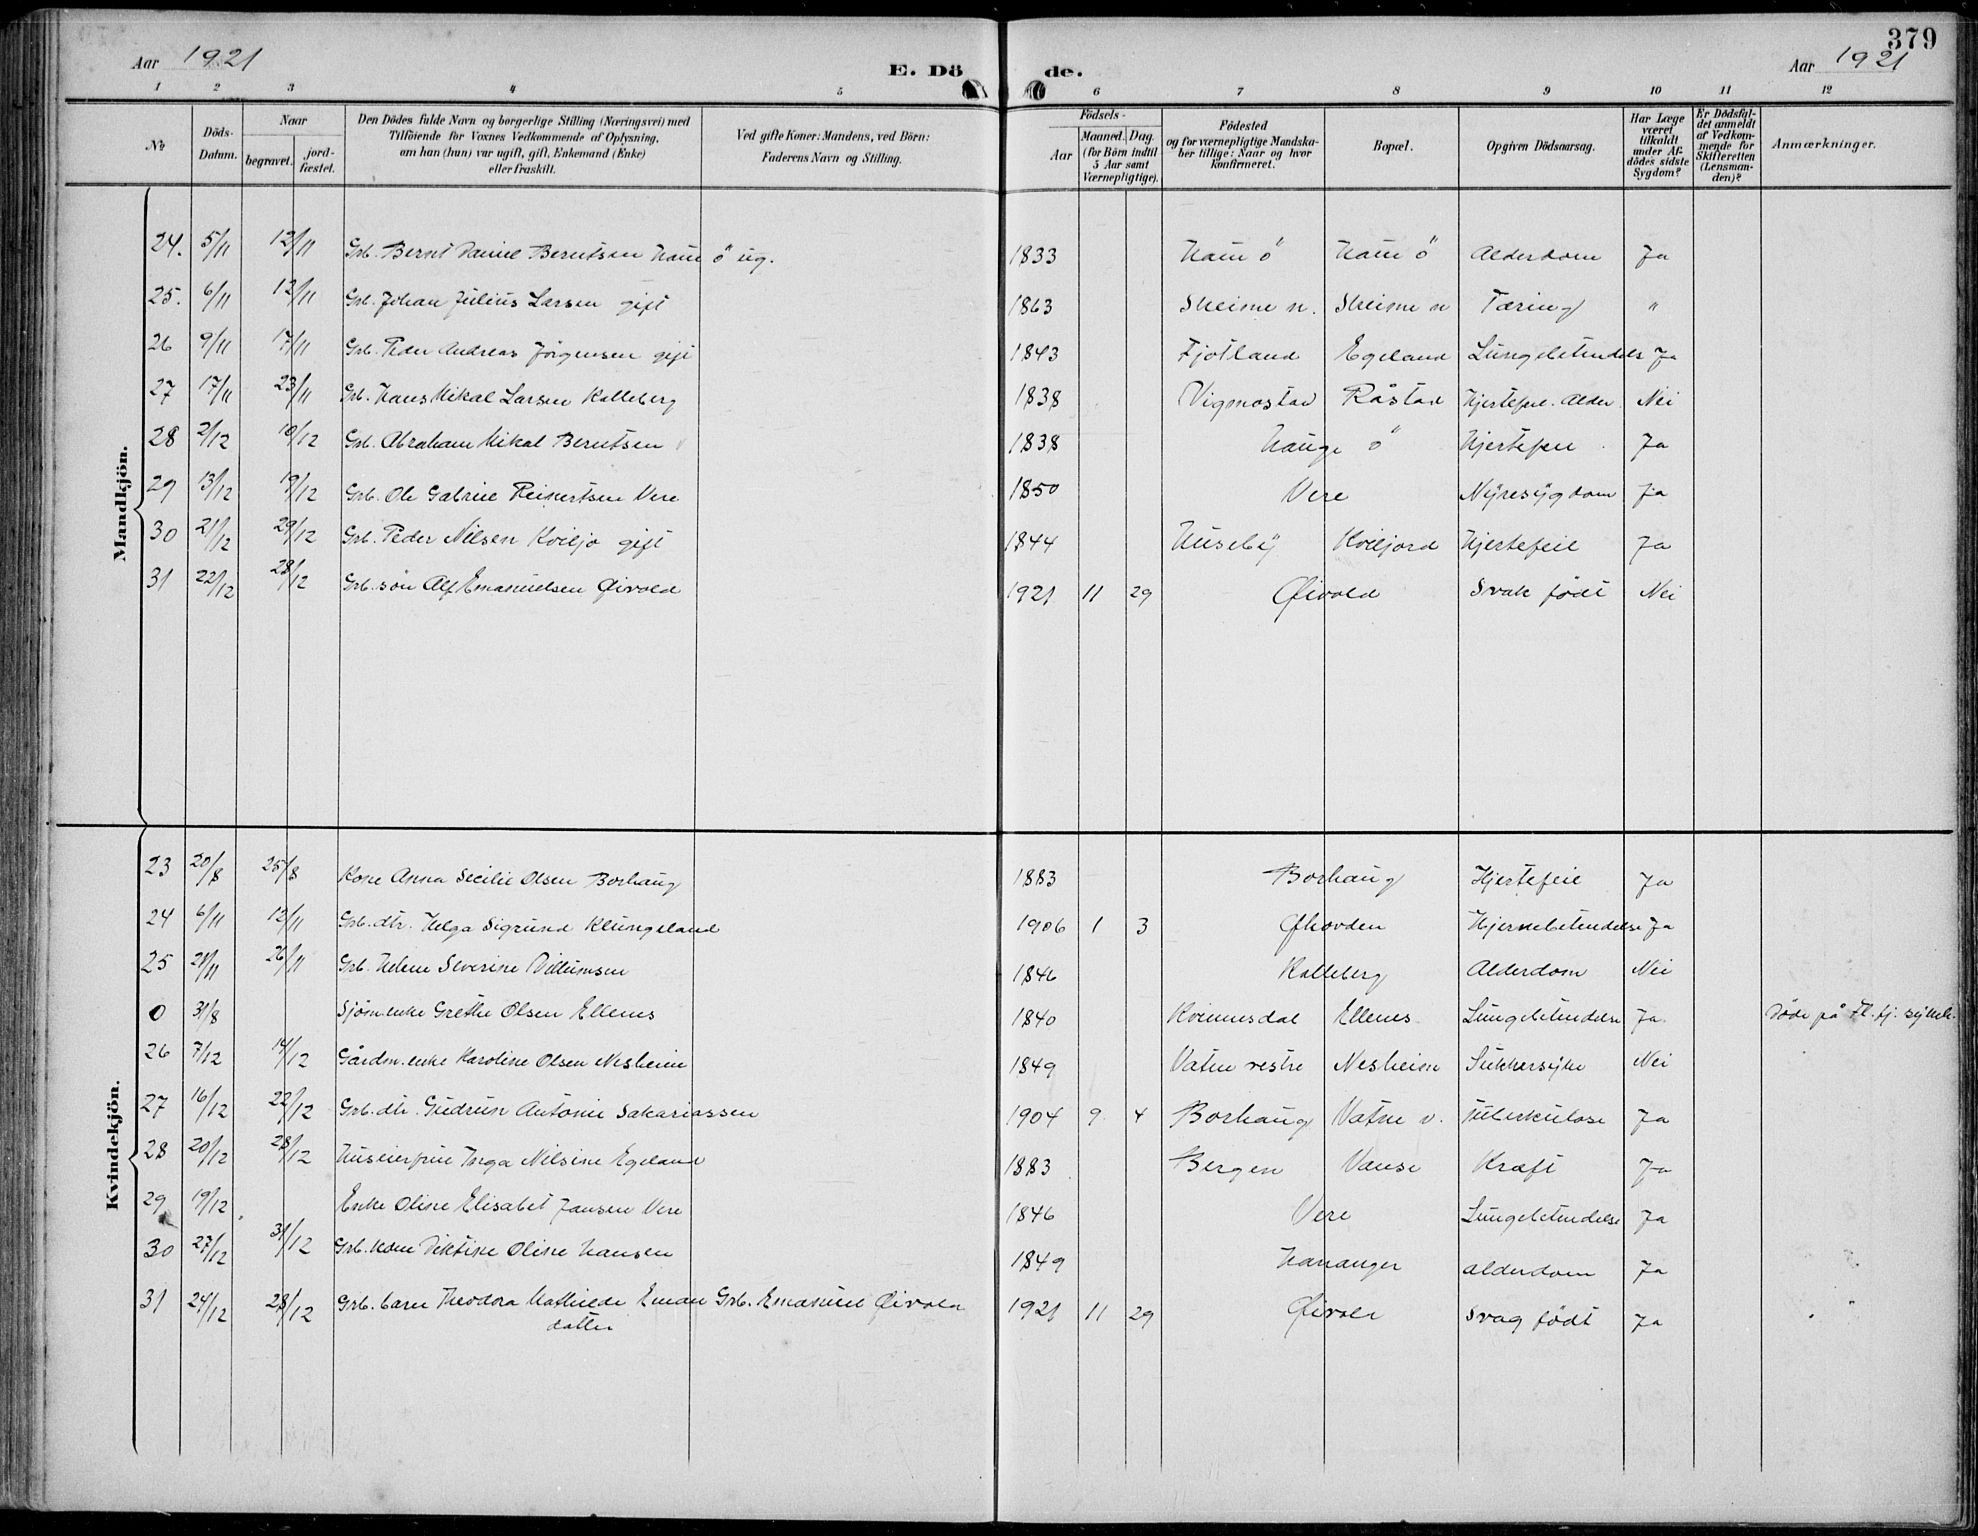 379
Aar 1921
E. Dö
de.
Aar 1921
1 2 3 4 5 6 7 8 9 10 11 12
№
Döds-Datum.
Naar
begravet.
jord-fæstet.
Den Dödes fulde Navn og borgerlige Stilling (Næringsvei) med
Tilföiende for Voxnes Vedkommende af Oplysning,
om han (hun) var ugift, gift, Enkemand (Enke)
eller fraskilt.
Ved gifte Koner: Mandens, ved Börn:
Faderens Navn og Stilling.
Födsels-
Aar
Maaned. Dag.
(for Börn indtil
5 Aar samt
Værnepligtige).
Födested
og for værnepligtige Mandska-
ber tillige: Naar og hvor
konfirmeret.
Bopæl.
Opgiven Dödsaarsag.
Har Læge
været
tilkaldt
under Af-
dödes sidste
Sygdom?
Er Dödsfal-
det anmeldt
af Vedkom-
mende for
Skifteretten
(Lensman-
den)?
Anmærkninger.
Mandkjön.
24. 5/11 12/11 Grb. Bernt Daniel Berntsen Haug ö ug. 1833 Haug ö Haug ö Alderdom Ja
25. 6/11 12/11 Grb. Johan Julius Larsen gift 1863 Skeime n. Skeime n Tæring "
26 9/11 17/11 Grb. Peder Andreas Jörgensen gift 1843 Fjotland Egeland Lungebetendels Ja
27 17/11 23/11 Grb. Hans Mikal Larsen Kalleberg 1838 Vigmostad Råstad Hjertefeil. Alder. Nei
28 2/12 10/12 Grb. Abraham Mikal Berntsen 1838 Hauge ö Hjertefeil Ja
29 13/12 19/12 Grb. Ole Gabriel Reinertsen Vere 1850 Vere Nyresygdom Ja
30 21/12 29/12 Grb. Peder Nilsen Kviljo gift 1844 Huseby Kviljord Hjertefeil Ja
31 22/12 28/12 Grb. sön Alf Emanuelsen Öivold 1921 11 29 Öivold Svak födt Nei
Kvindekjön.
23 20/8 25/8 Kone Anna Secilie Olsen Borhaug 1883 Borhaug Hjertefeil Ja
24 6/11 12/11 Grb. dtr. Helga Sigrund Klungeland 1906 1 3 Öfhovden Hjernebetendelse Ja
25 21/11 26/11 Grb. Helene Severine Villumsen 1846 Kalleberg Alderdom Nei
0 31/8 Sjöm. enke Grethe Olsen Ellenes 1840 Kvinnesdal Ellenes Lungebetendelse Ja Döde på Fl. fj. sykeh.
26 7/12 14/12 Gårdm. enke Karoline Olsen Nesheim 1849 Vatne vestre Nesheim Sukkersyke Nei
27 16/12 22/12 Grb. dtr. Gudrun Antonie Sakariassen 1904 9 4 Borhaug Vatne v. Tuberkulose Ja
28 20/12 28/12 Huseierfrue Inga Nilsine Egeland 1883 Bergen Vanse Kræft Ja
29 19/12 Enke Oline Elisabet Jansen Vere 1846 Vere Lungebetendelse Ja
30 27/12 31/12 Grb. kone Viktine Oline Hansen 1849 Hananger alderdom Ja
31 24/12 28/12 Grb. barn Theodora Mathilde Eman Grb. Emanuel Öivold 1921 11 29 Öivold Svag födt Ja
datter